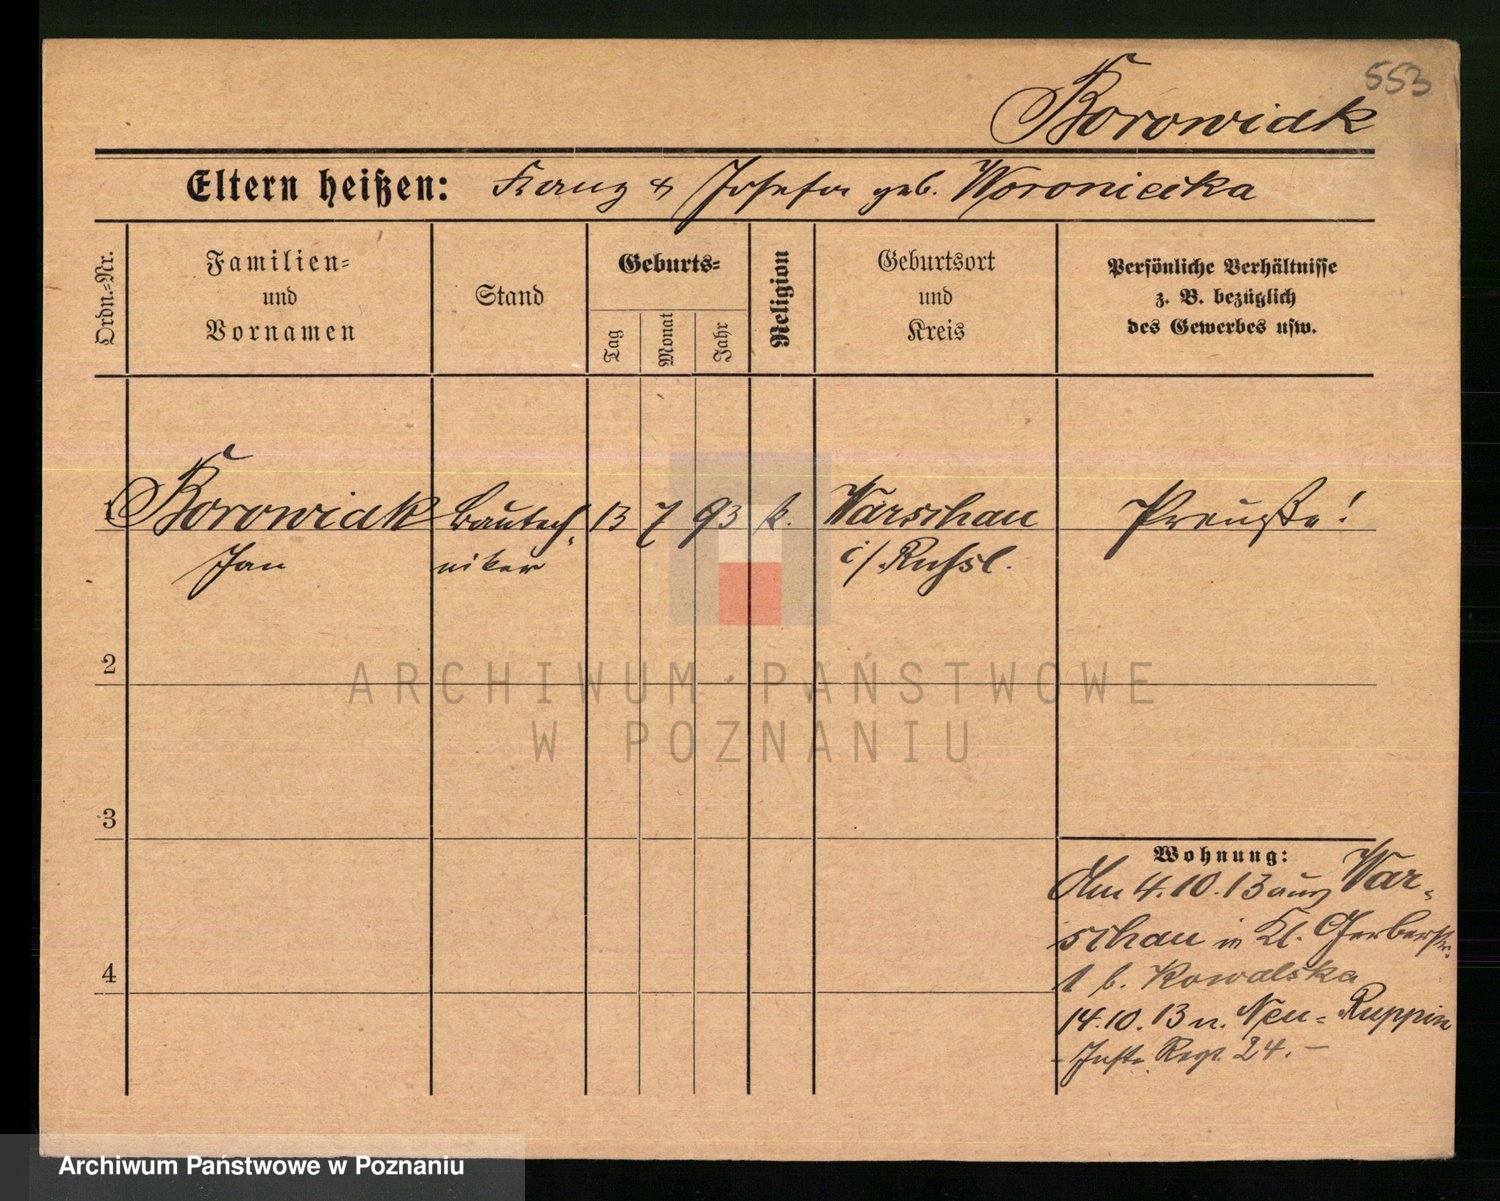 553
Borowiak
Eltern heißen: Franz & Josefa geb. Woroniecka
Ordn.-Nr.
Familien-
und
Vornamen
Stand
Geburts-
Tag
Monat
Jahr
Religion
Geburtsort
und
Kreis
Persönliche Verhältnisse
z. B. bezüglich
des Gewerbes usw.
Borowiak Bautech- 13 7 93 k. Warschau Preuße!
Jan niker i/Rußl.
2
3
4
Wohnung:
Am 4.10.13 aus War-
schau in Kl. Gerberstr.
1 b. Kowalska
14.10.13 n. Neu-Ruppin
Inftr. Regt. 24. -
ARCHIWUM PAŃSTWOWE
W POZNANIU
Archiwum Państwowe w Poznaniu